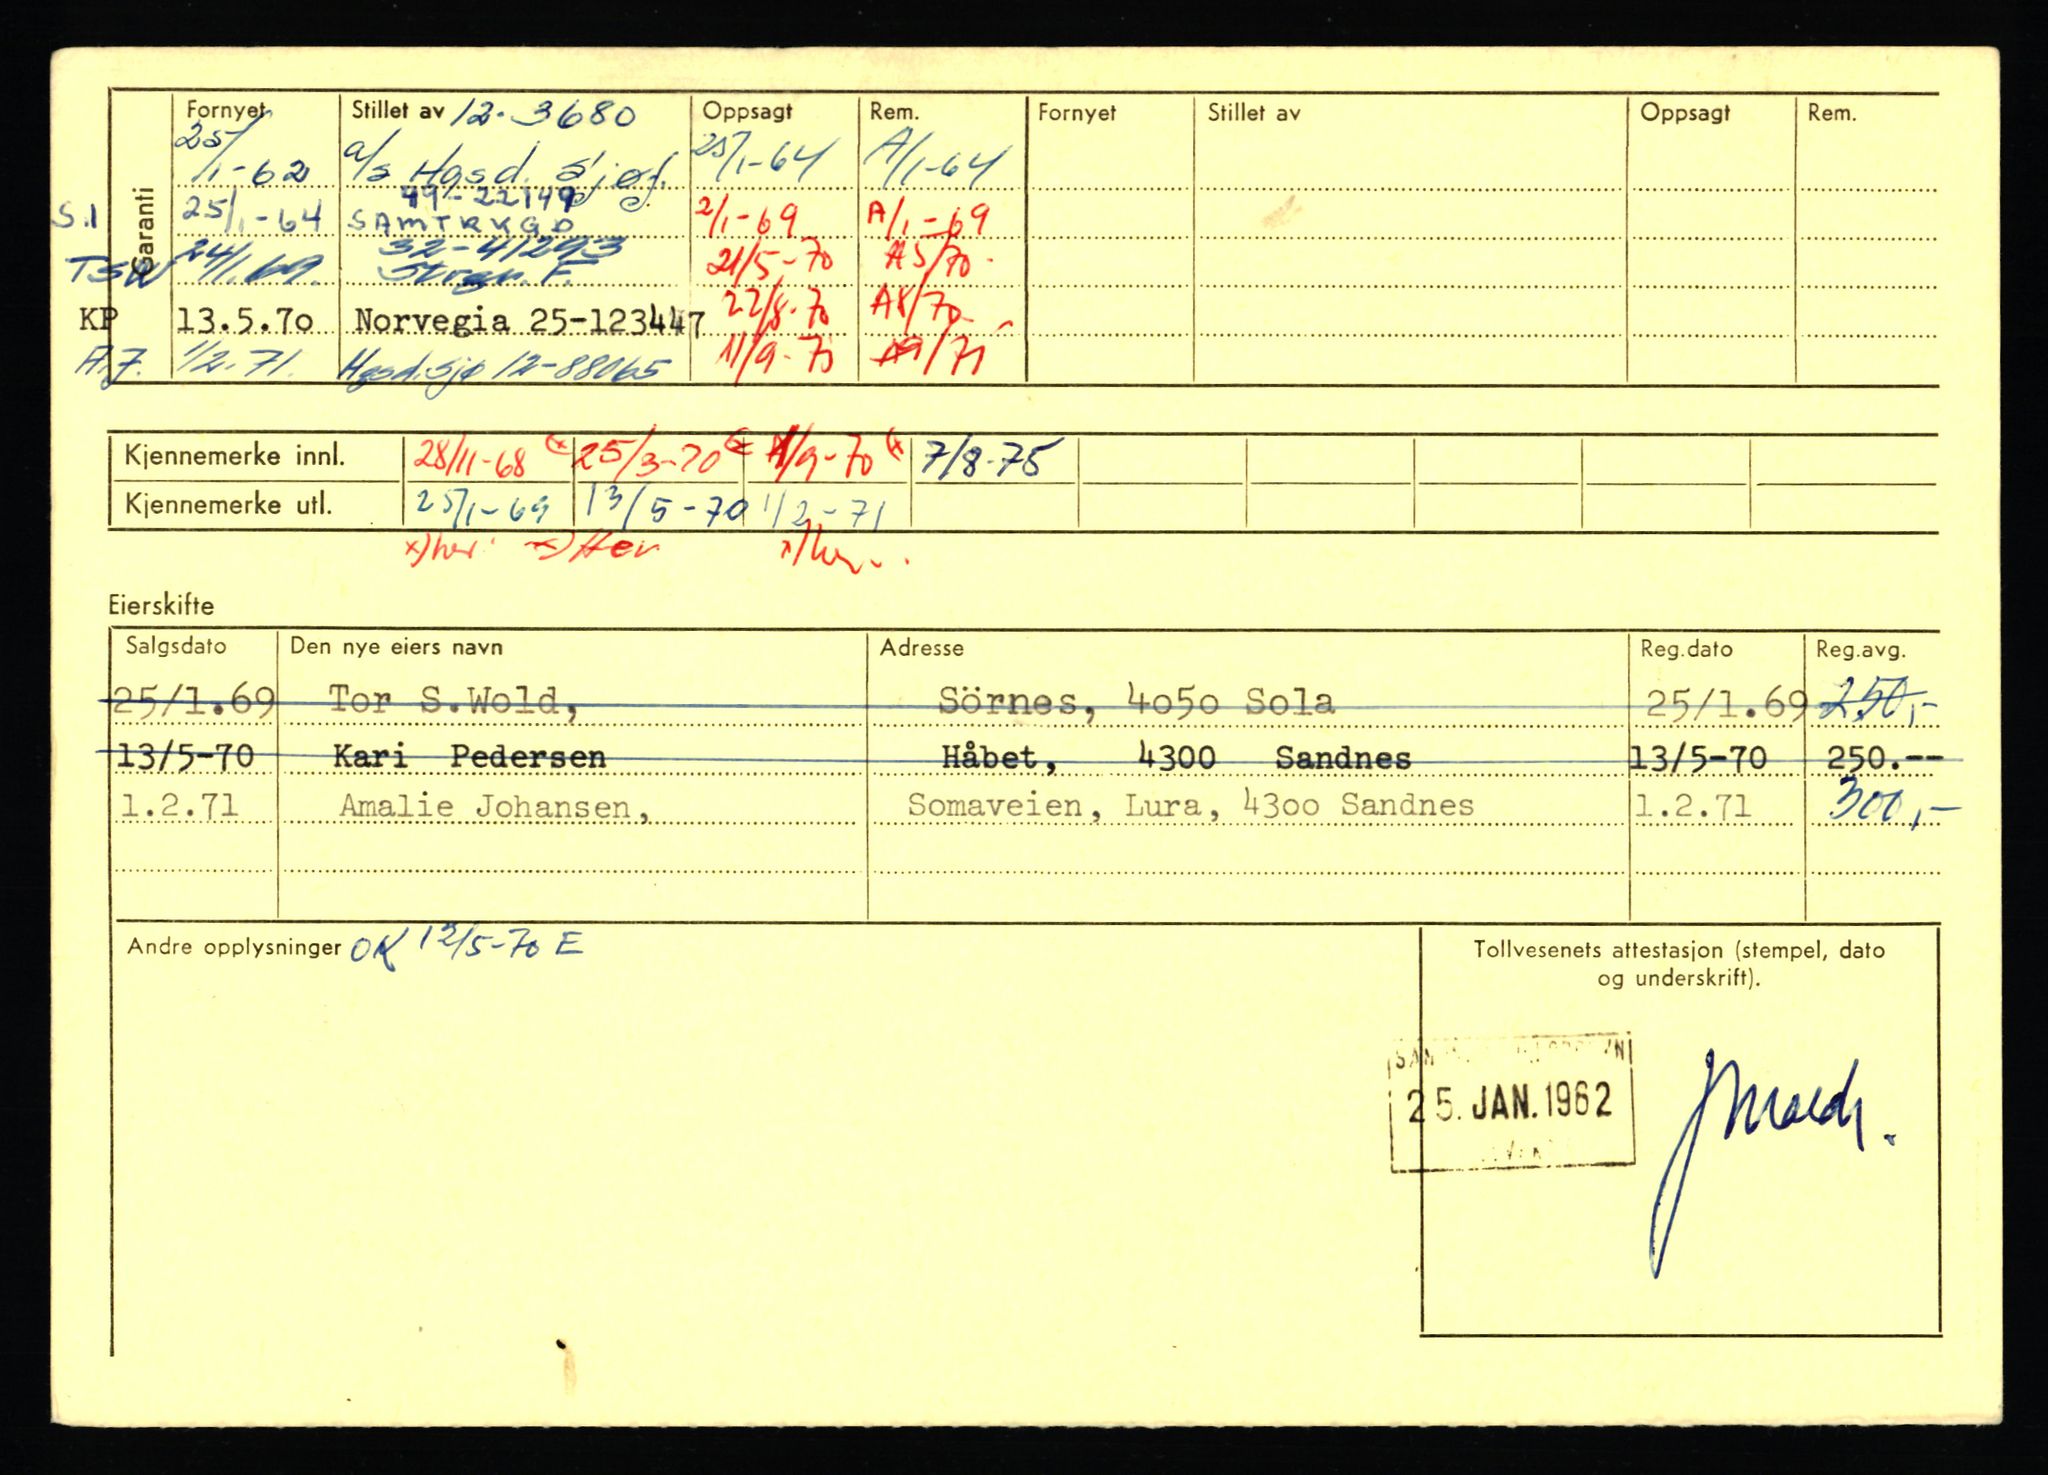 Fornyet Stillet av 12-3680 Oppsagt Rem. Fornyet Stillet av Oppsagt Rem.
Garanti
25/1-62 a/s Hgsd. Sjøf. 25/1-64 A/1-64
49-22149
S.I 25/1-64 SAMTRYGD 2/1-69 A/1-69
32-41293
TSW 24/1.69. Strgn. F. 21/5-70 A5/70.
KP 13.5.7o Norvegia 25-123447 22/8-70 A8/70
A.J. 1/2.71. Hgsd.sjø 12-88065 11/9-70 /71
Kjennemerke innl. 28/11-68 (x 25/3-70 (x 1/9-70 (x 7/8-75
Kjennemerke utl. 25/1-69 13/5-70 1/2-71
x) her x) Her x) her.
Eierskifte
Salgsdato Den nye eiers navn Adresse Reg.dato Reg.avg.
25/1.69 Tor S.Wold, Sörnes, 4o5o Sola 25/1.69 250,-
13/5-70 Kari Pedersen Håbet, 4300 Sandnes 13/5-70 250.--
1.2.71 Amalie Johansen, Somaveien, Lura, 43oo Sandnes 1.2.71 300,-
Andre opplysninger OK 12/5-70 E
Tollvesenets attestasjon (stempel, dato
og underskrift).
25. JAN. 1962